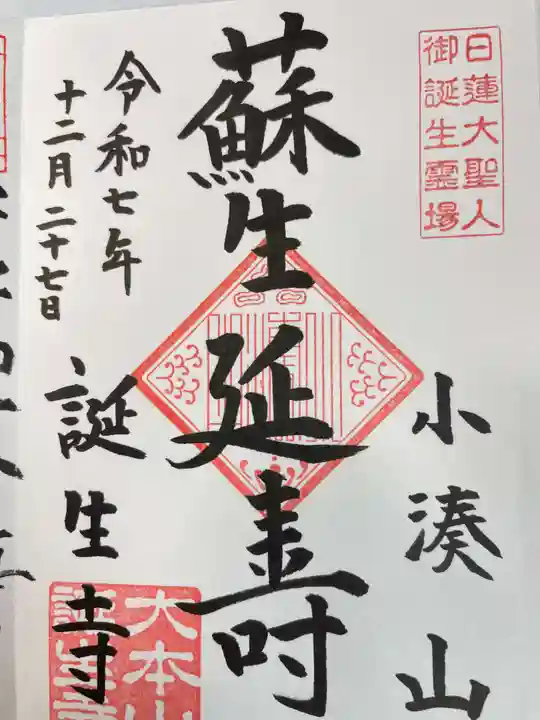 日蓮大聖人
御誕生霊場
小湊山
蘇生延寿
令和七年
十二月二十七日
誕生寺
大本山
誕生寺